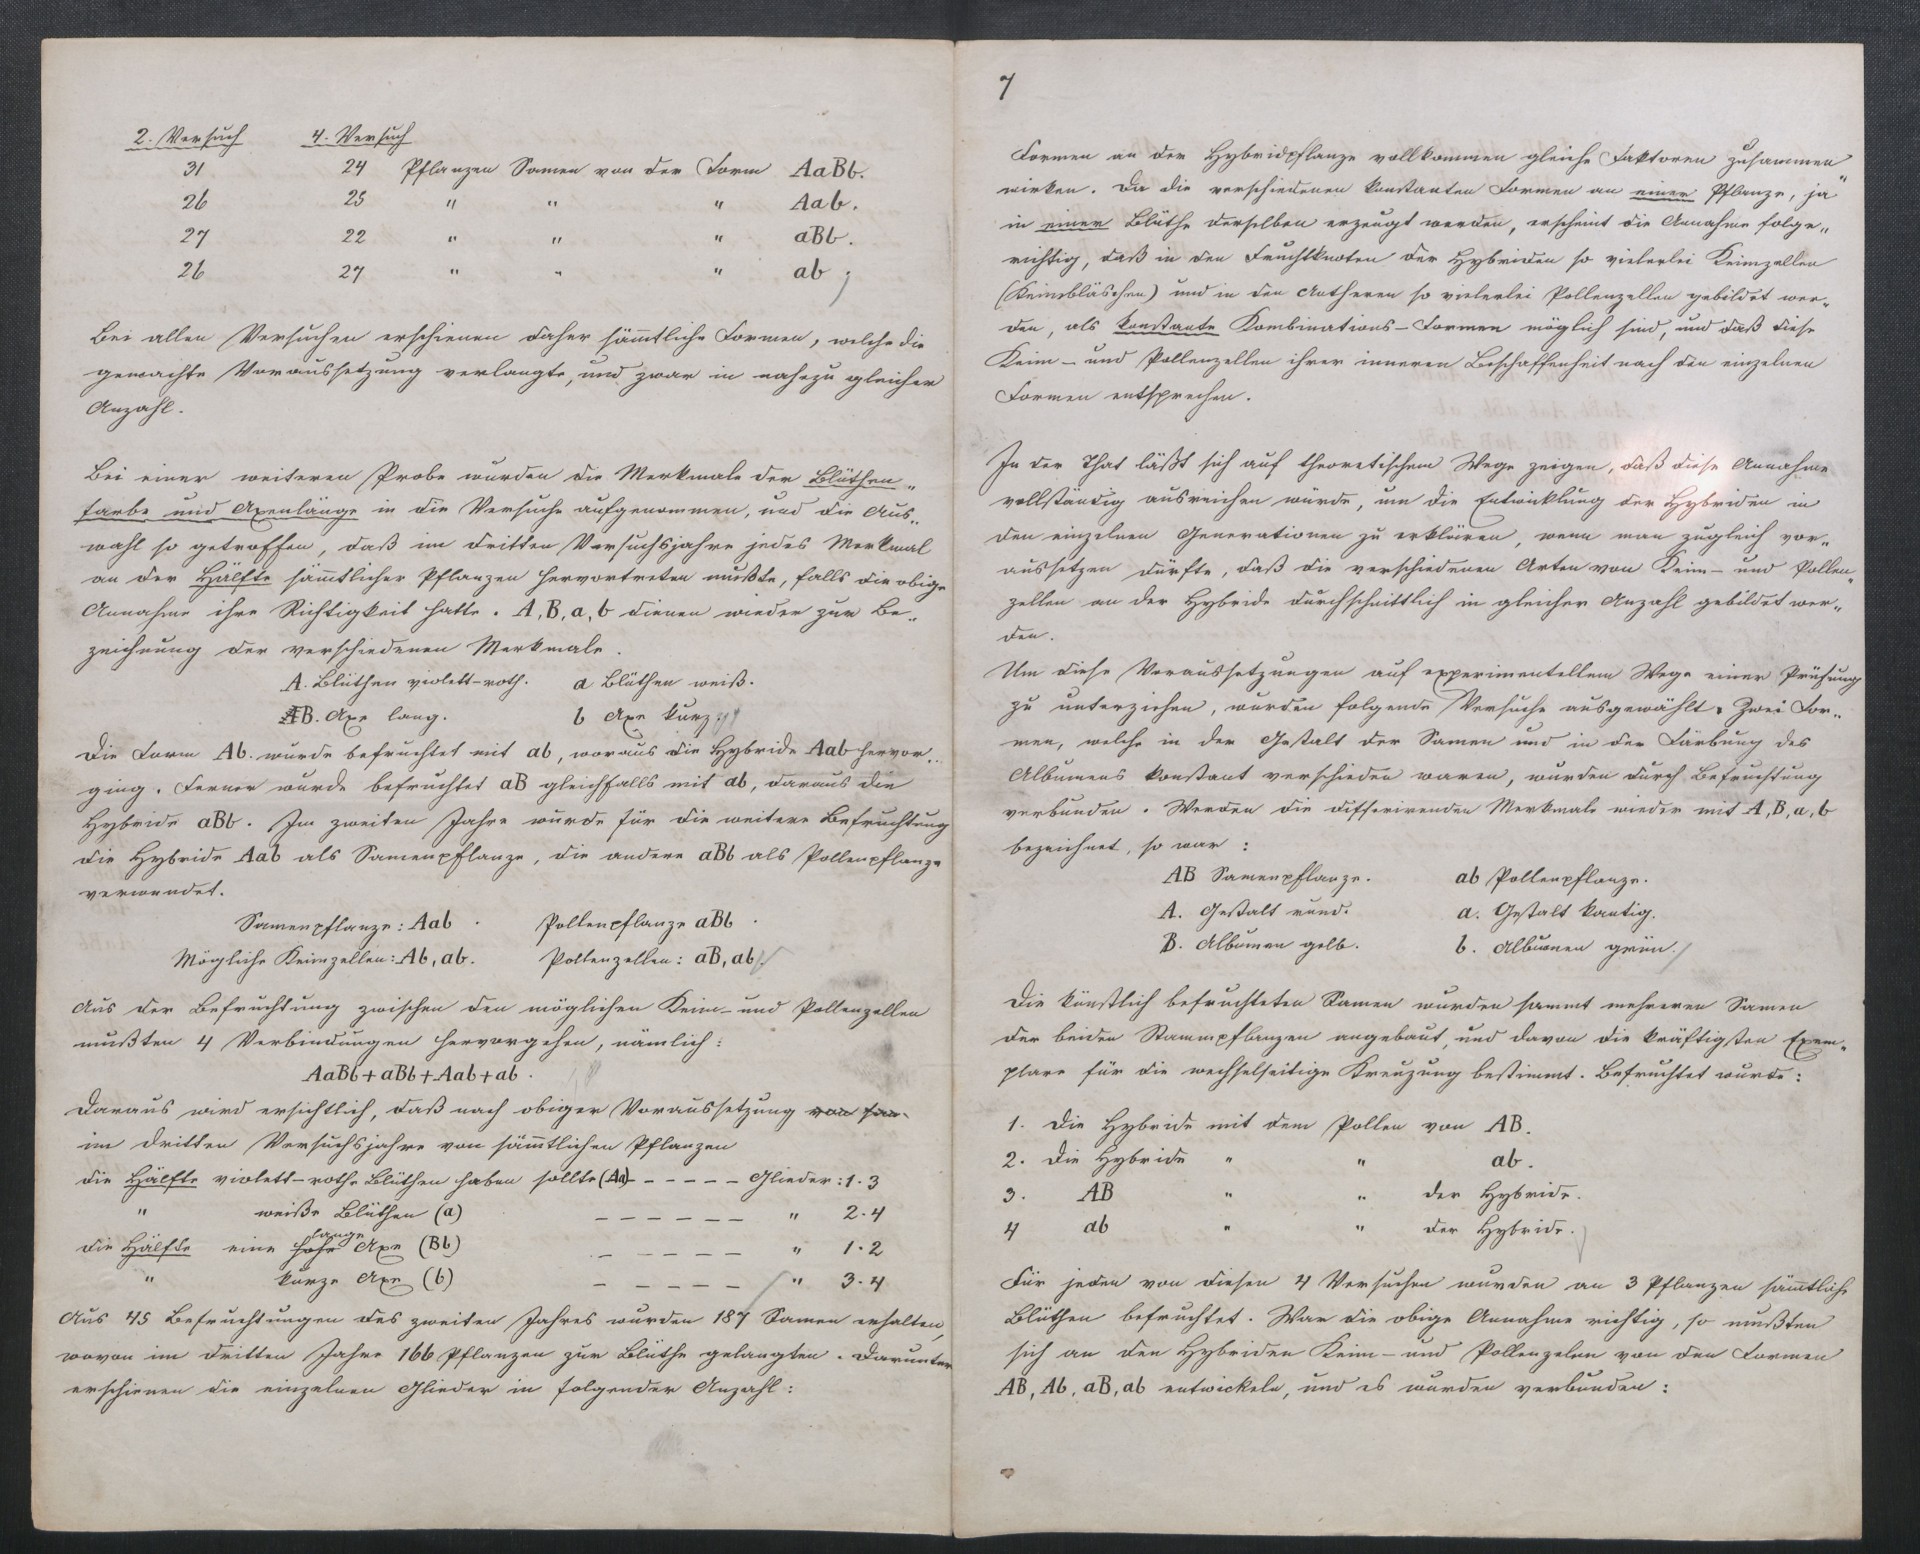 2. Versuch 4. Versuch
31 24 Pflanzen Samen von der Form AaBb.
26 25 " " " Aab.
27 22 " " " aBb.
26 27 " " " ab;
Bei allen Versuchen erschienen daher sämmtliche Formen, welche die
gemachte Voraussetzung verlangte, und zwar in nahezu gleicher
Anzahl.
Bei einer weiteren Probe wurden die Merkmale der Blüthen-
farbe und Axenlänge in die Versuche aufgenommen, und die Aus-
wahl so getroffen, daß im dritten Versuchsjahre jedes Merkmal
an der Hälfte sämmtlicher Pflanzen hervortreten mußte, falls die obige
Annahme ihre Richtigkeit hatte. A, B, a, b dienen wieder zur Be-
zeichnung der verschiedenen Merkmale.
A. Blüthen violett-roth. a Blüthen weiß.
B. Axe lang. b Axe kurz.
Die Form Ab. wurde befruchtet mit ab, woraus die Hybride Aab hervor-
ging. Ferner wurde befruchtet aB gleichfalls mit ab, daraus die
Hybride aBb. Im zweiten Jahre wurde für die weitere Befruchtung
die Hybride Aab als Samenpflanze, die andere aBb als Pollenpflanze
verwendet.
Samenpflanze: Aab. Pollenpflanze aBb.
Mögliche Keimzellen: Ab, ab. Pollenzellen: aB, ab.
Aus der Befruchtung zwischen den möglichen Keim- und Pollenzellen
mußten 4 Verbindungen hervorgehen, nämlich:
AaBb + aBb + Aab + ab.
Daraus wird ersichtlich, daß nach obiger Voraussetzung
im dritten Versuchsjahre von sämmtlichen Pflanzen
die Hälfte violett-rothe Blüthen haben sollte (Aa) - - - - - Glieder: 1. 3
" weiße Blüthen (a) - - - - - - " 2. 4
die Hälfte eine hohe lange Axe (Bb) - - - - - " 1. 2
" kurze Axe (b) - - - - - " 3. 4
Aus 45 Befruchtungen des zweiten Jahres wurden 187 Samen erhalten,
wovon im dritten Jahre 166 Pflanzen zur Blüthe gelangten. Darunter
erschienen die einzelnen Glieder in folgender Anzahl:
7
Formen an der Hybridpflanze vollkommen gleiche Faktoren zusammen
wirken. Da die verschiedenen konstanten Formen an einer Pflanze, ja
in einer Blüthe derselben erzeugt werden, erscheint die Annahme folge-
richtig, daß in den Fruchtknoten der Hybriden so vielerlei Keimzellen
(Keimbläschen) und in den Antheren so vielerlei Pollenzellen gebildet wer-
den, als konstante Kombinations-Formen möglich sind, und daß diese
Keim- und Pollenzellen ihrer inneren Beschaffenheit nach den einzelnen
Formen entsprechen.
In der That läßt sich auf theoretischem Wege zeigen, daß diese Annahme
vollständig ausreichen würde, um die Entwicklung der Hybriden in
den einzelnen Generationen zu erklären, wenn man zugleich vor-
aussetzen dürfte, daß die verschiedenen Arten von Keim- und Pollen-
zellen an der Hybride durchschnittlich in gleicher Anzahl gebildet wer-
den.
Um diese Voraussetzungen auf experimentellem Wege einer Prüfung
zu unterziehen, wurden folgende Versuche ausgewählt. Zwei For-
men, welche in der Gestalt der Samen und in der Färbung des
Albumens konstant verschieden waren, wurden durch Befruchtung
verbunden. Werden die differirenden Merkmale wieder mit A, B, a, b
bezeichnet, so war:
AB Samenpflanze. ab Pollenpflanze.
A. Gestalt rund. a. Gestalt kantig.
B. Albumen gelb. b. Albumen grün.
Die künstlich befruchteten Samen wurden sammt mehreren Samen
der beiden Stammpflanzen angebaut, und davon die kräftigsten Exem-
plare für die wechselseitige Kreuzung bestimmt. Befruchtet wurde:
1. Die Hybride mit dem Pollen von AB.
2. Die Hybride " " ab.
3. AB " " der Hybride.
4 ab " " der Hybride.
Für jeden von diesen 4 Versuchen wurden an 3 Pflanzen sämmtliche
Blüthen befruchtet. War die obige Annahme richtig, so mußten
sich an den Hybriden Keim- und Pollenzelen von den Formen
AB, Ab, aB, ab entwickeln, und es wurden verbunden: